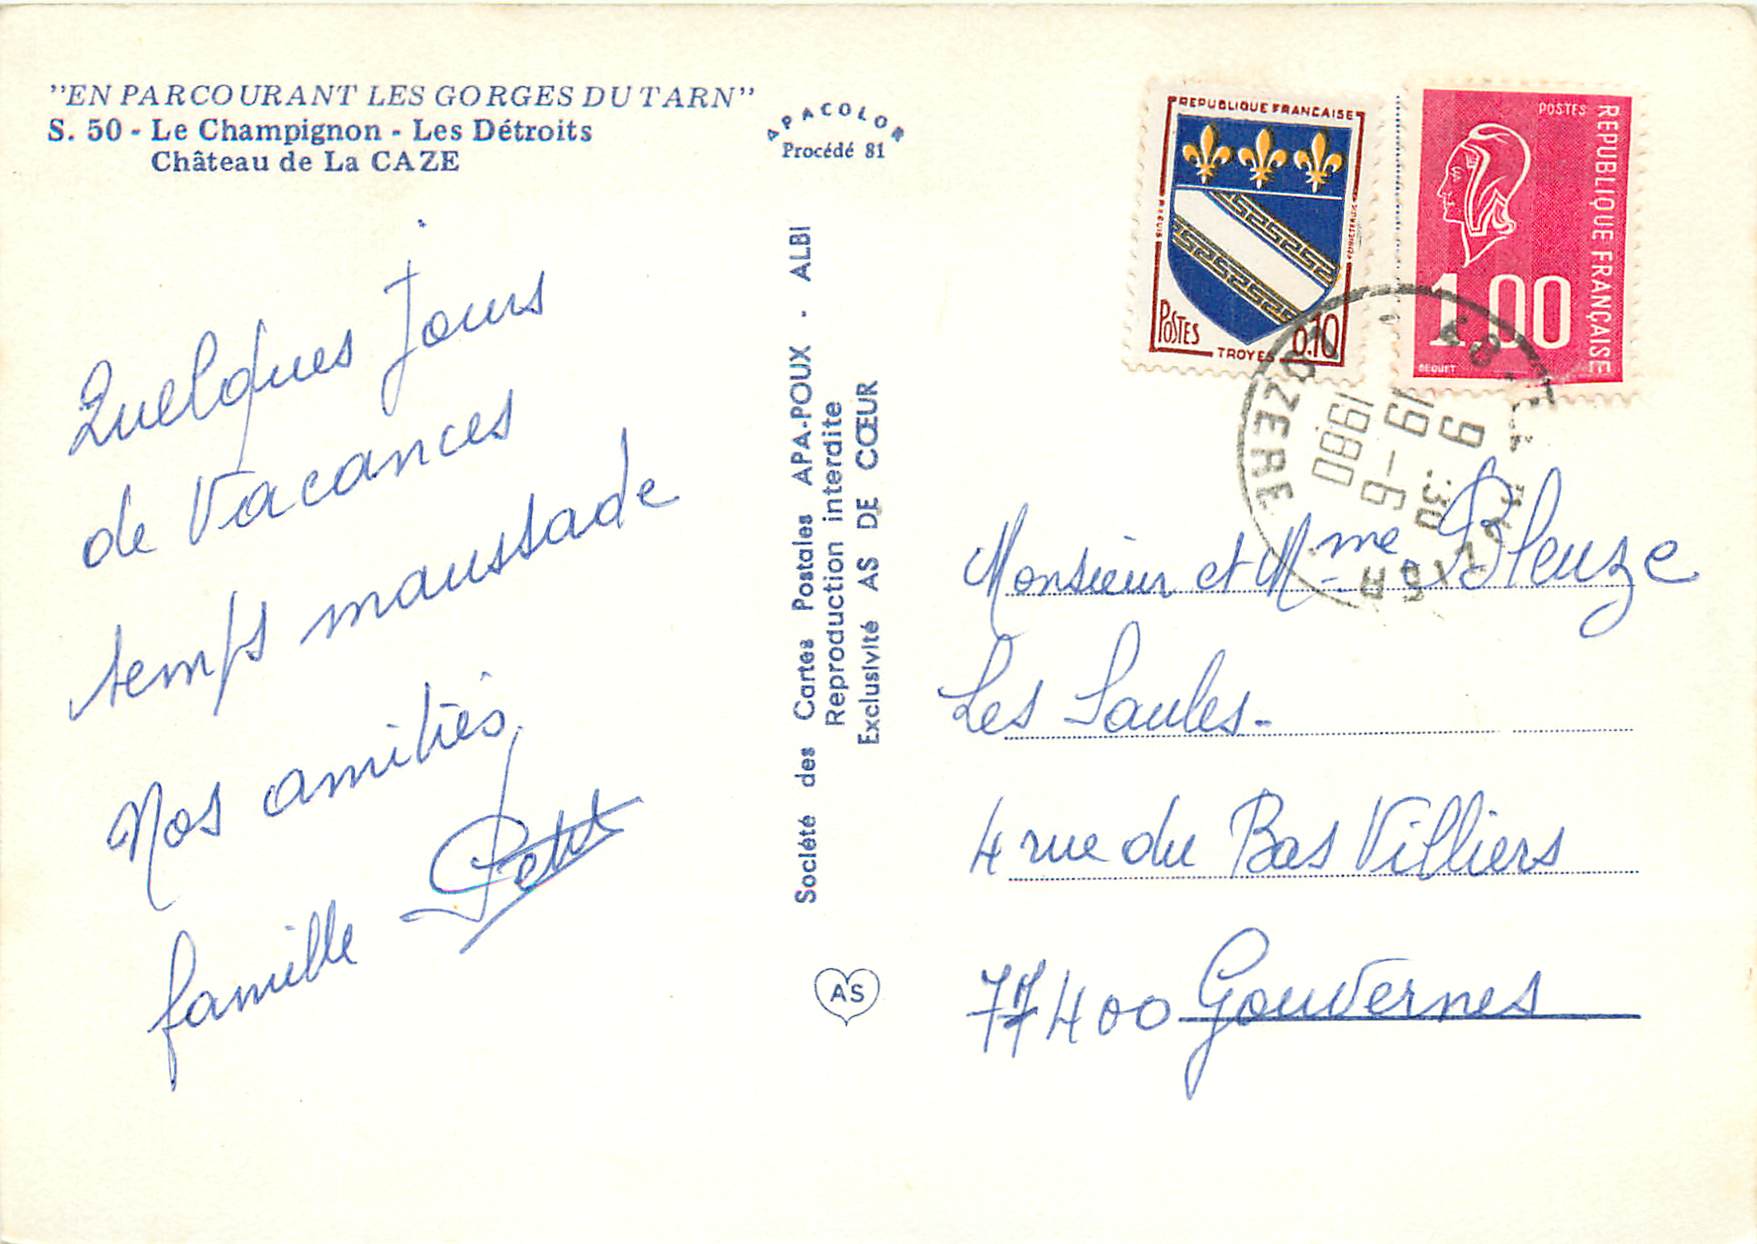 "EN PARCOURANT LES GORGES DU TARN"
S. 50 - Le Champignon - Les Détroits
Château de La CAZE
APACOLOR
Procédé 81
Quelques jours
de Vacances
temps maussade
Nos amitiés
famille Petit
Société des Cartes Postales APA-POUX - ALBI
Reproduction interdite
Exclusivité AS DE CŒUR
AS
REPUBLIQUE FRANCAISE
POSTES
TROYES
0.10
POSTES
REPUBLIQUE FRANÇAISE
1.00
BEQUET
LOZERE
9 30
19 - 6
1980
Monsieur et Mme Bleuze
Les Saules -
4 rue du Bas Villiers
77400 Gouvernes